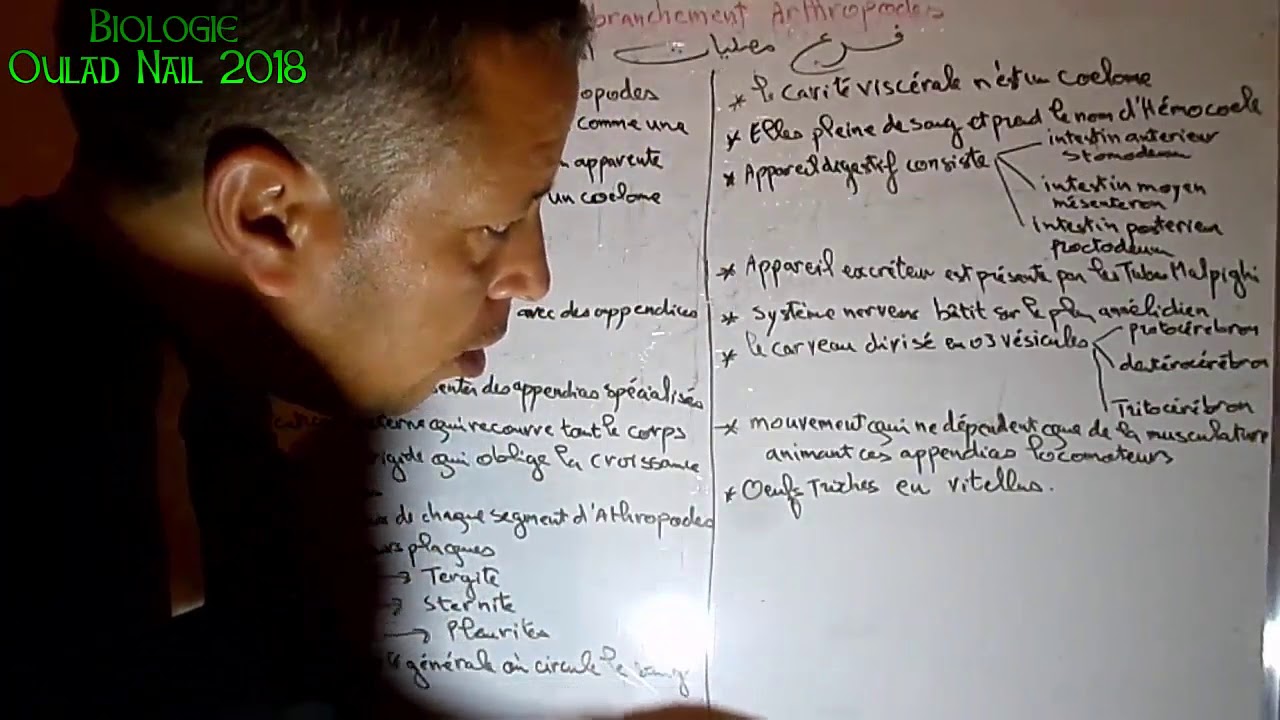 BIOLOGIE
OULAD NAIL 2018
branchement Arthropodes
فرع مفصليات ا
opodes
comme une
apparente
un coelome
avec des appendices
senter des appendias spécialisés
terne qui recouvre tout le corps
rigide qui oblige la croissance
de chaque segment d'Athropodes
urs plaques
→ Tergite
→ Sternite
→ Pleurites
générale où circule le sang
* le cavité viscérale n'est un coelome
* Elles pleine de sang et prend le nom d'Hémocoele
* Appareil digestif consiste
intestin anterieur
stomodeum
intestin moyen
mésenteron
intestin posterieur
proctodeum
* Appareil excréteur est présenté par les Tube Malpighi
* Système nerveux bâtit sur le plan annélidien
* le carveau divisé en 03 vésicules
protocérébron
deutérocérébron
Tritocérébron
* mouvement qui ne dépendent que de la musculature
animant ces appendias locomoteurs
* Oeufs riches en vitellus.